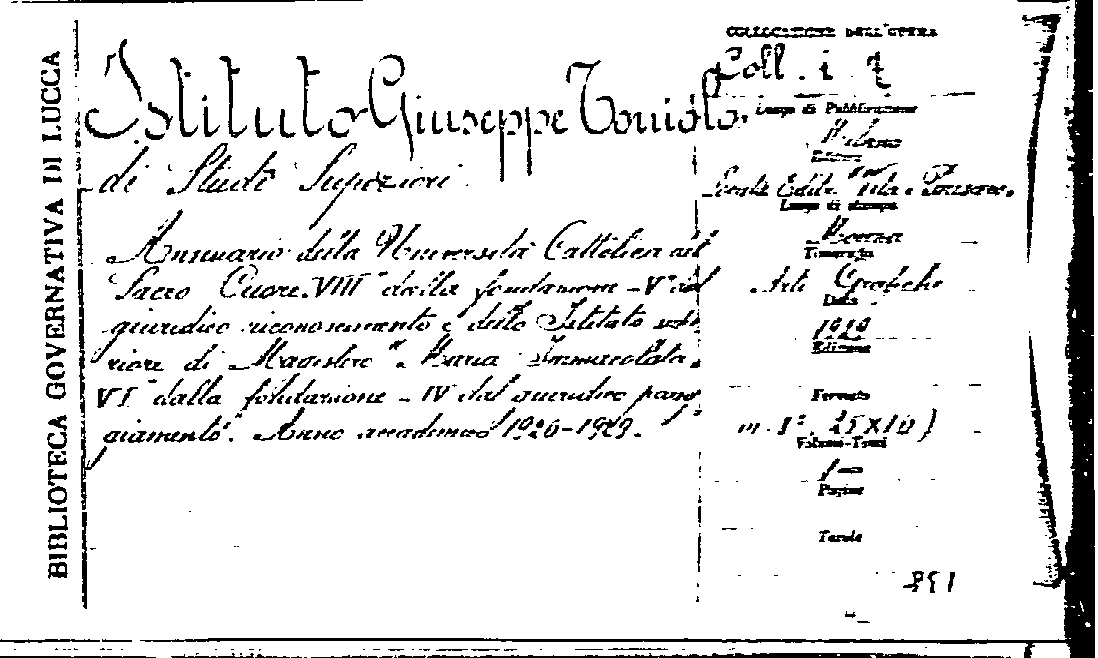 BIBLIOTECA GOVERNATIVA DI LUCCA
Istituto Giuseppe Toniolo.
di Studi Superiori
Annuario della Università Cattolica del
Sacro Cuore. VIII dalla fondazione - V dal
giuridico riconoscimento e dello Istituto
riore di Magistero "Maria Immacolata.
VI dalla fondazione - IV dal giuridico pareg
giamento". Anno accademico 1928-1929.
COLLOCAZIONE DELL'OPERA
Coll. i. 7
Luogo di Pubblicazione
Milano
Editore
Società Editr. "Vita e Pensiero.
Luogo di stampa
Tipografia
Arti Grafiche
Data
1929
Edizione
Formato
in 8º. 25X16)
Volume-Tomi
Pagine
Tavole